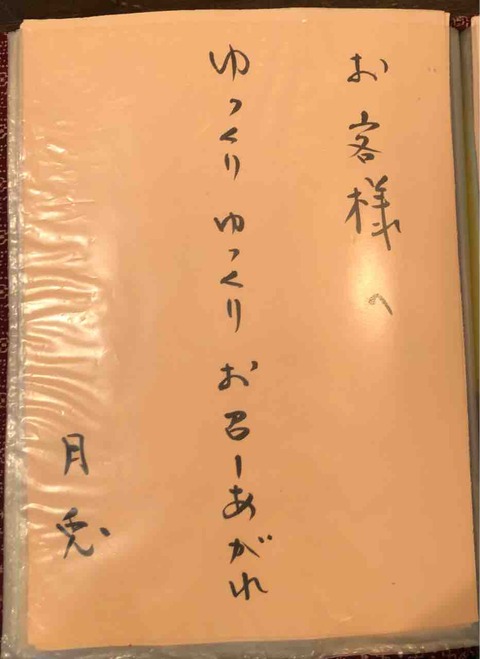 お客様へ
ゆっくりゆっくりお召ーあがれ
月兎